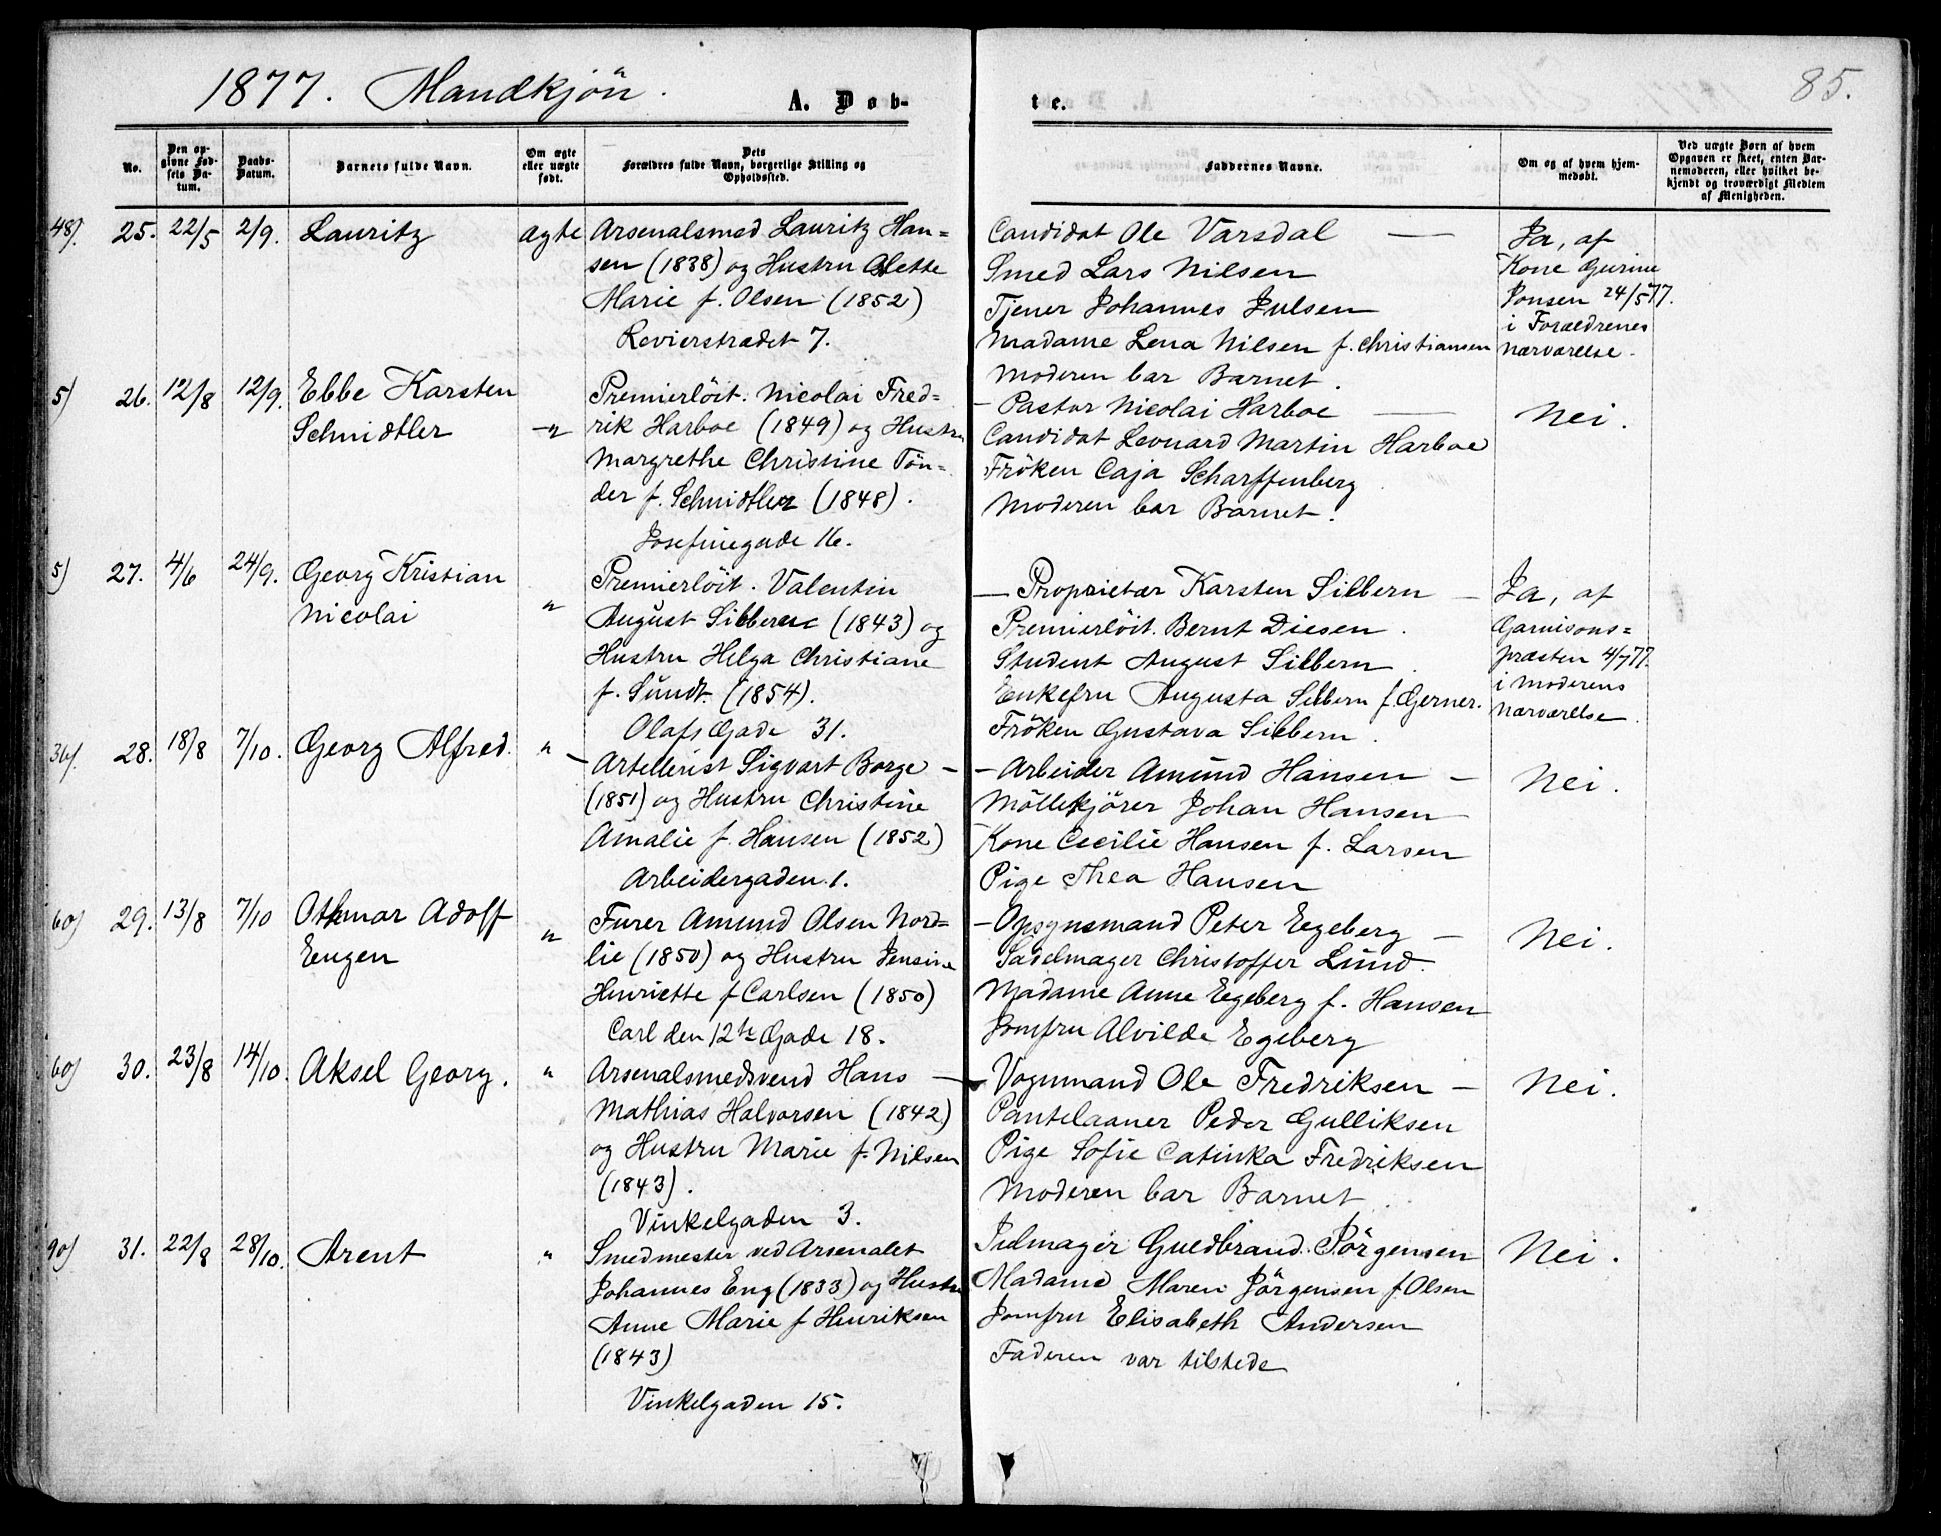 1877. Mandkjön.
A. Døb-
te.
85.
No.
Den op-
givne Fød-
sels Da-
tum.
Daabs-
Datum.
Barnets fulde Navn.
Om ægte
eller uægte
født.
Dets
Forældres fulde Navn, borgerlige Stilling og
Opholdssted.
Faddernes Navne.
Om og af hvem hjem-
medøbt.
Ved uægte Børn af hvem
Opgaven er skeet, enten Bar-
nemoderen, eller hvilket be-
kjendt og troværdigt Medlem
af Menigheden.
48). 25. 22/5 2/9. Lauritz ægte
Arsenalsmed Lauritz Han=
sen (1838) og Hustru Alette
Marie f. Olsen (1852)
Revierstrædet 7.
Candidat Ole Varsdal —
Smed Lars Nilsen
Tjener Johannes Julsen
Madame Lena Nilsen f. Christiansen
Moderen bar Barnet.
Ja, af
Kone Gurine
Jonsen 24/5 77.
i Forældrenes
Nærværelse.
5) 26. 12/8 12/9. Ebbe Karsten
Schnidtler
-"-
Premierlöit. Nicolai Fred=
rik Harboe (1849) og Hustru
Margrethe Christine Tön=
der f. Schnidtler (1848).
Josefinegade 16.
- Pastor Nicolai Harboe —
Candidat Leonard Martin Harboe
Fröken Caja Scharffenberg
Moderen bar Barnet.
Nei.
5) 27. 4/6 24/9. Georg Kristian
Nicolai
"
Premierlöit. Valentin
August Sibbern (1843) og
Hustru Helga Christiane
f. Sundt. (1854).
Olafs Gade 31.
— Proprietær Karsten Sibbern —
Premierlöit. Bernt Diesen.
Student August Sibbern.
Enkefru Augusta Sibbern f. Gerner.
Fröken Gustava Sibbern.
Ja, af
Garnisons=
præsten 4/7 77.
i Moderens
Nærværelse.
36). 28. 18/8 7/10. Georg Alfred. "
- Artellerist Sigvart Borge -
(1851) og Hustru Christine
Amalie f. Hansen (1852)
Arbeidergaden 1.
- Arbeider Amund Hansen -
Möllekjörer Johan Hansen
Kone Cecilie Hansen f. Larsen
Pige Thea Hansen
Nei.
60) 29. 13/8 7/10 Othmar Adolf
Eugen
"
Furer Amund Olsen Nord=
lie (1850) og Hustru Jensine
Henriette f Carlsen (1850)
Carl den 12te Gade 18.
- Opsynsmand Peter Egeberg -
Sadelmager Christoffer Lund.
Madame Anne Egeberg f. Hansen
Jomfru Alvilde Egeberg
Nei.
60) 30. 23/8 14/10. Aksel Georg. "
Arsenalsmedsvend Hans —
Mathias Halvorsen (1842)
og Hustru Marie f. Nilsen
(1843).
Vinkelgaden 3.
Vognmand Ole Fredriksen -
Pantelaaner Peder Gulliksen
Pige Sofie Catinka Fredriksen
Moderen bar Barnet.
Nei.
90) 31. 22/8 28/10. Arent "
Smedmester ved Arsenalet
Johannes Eng (1833) og Hustru
Anne Marie f Henriksen
(1843)
Vinkelgaden 15.
Julmager Guldbrand Jörgensen
Madame Maren Jörgensen f Olsen
Jomfru Elisabeth Andersen
Faderen var tilstede
Nei.